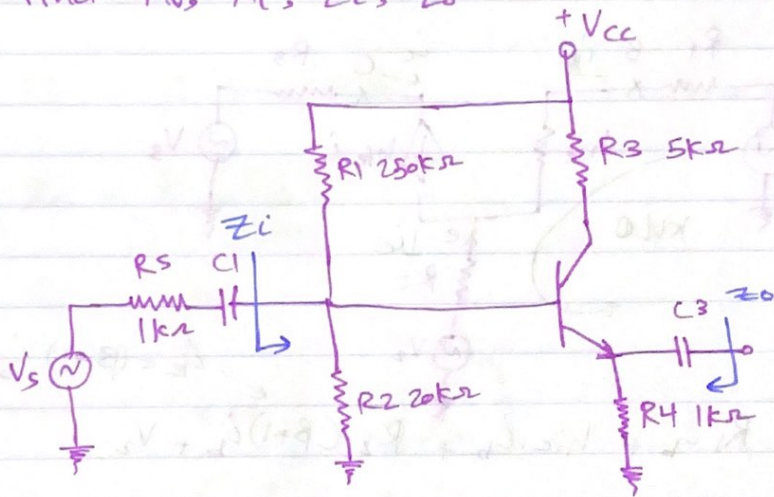 + Vcc
R1 250kΩ
R3 5kΩ
Zi
RS
C1
1kΩ
Vs
R2 20kΩ
C3
Zo
R4 1kΩ